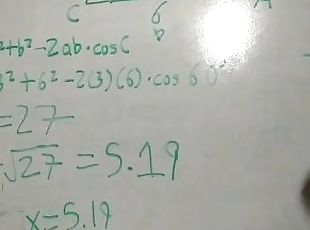 C 6 A
b
²+b²-2ab·cosC
3²+6²-2(3)(6)·cos 60°
=27
√27 = 5.19
x=5.19